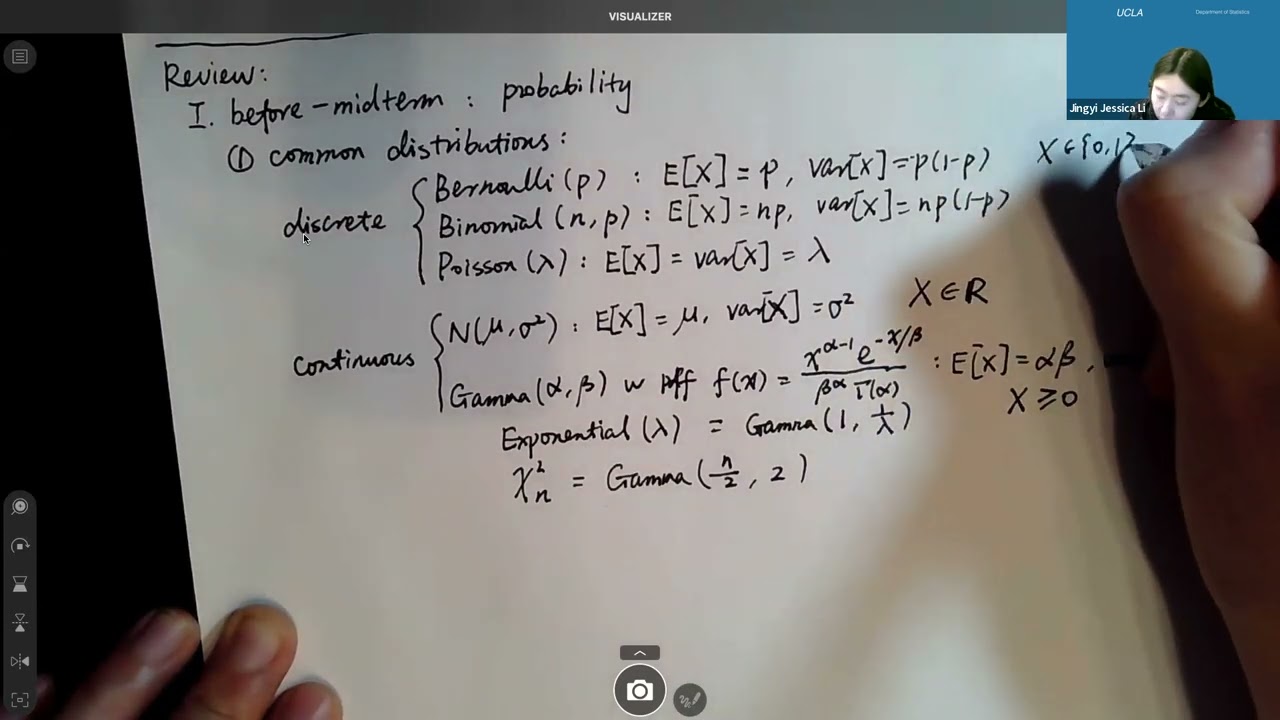 VISUALIZER
UCLA
Department of Statistics
Jingyi Jessica Li
Review:
I. before-midterm : probability
① common distributions :
discrete
Bernoulli (p) : E[X] = p, var[X] = p(1-p)
X ∈ {0,1}
Binomial (n, p) : E[X] = np, var[X] = np(1-p)
Poisson (λ) : E[X] = var[X] = λ
continuous
N(μ, σ²) : E[X] = μ, var[X] = σ²
X ∈ R
Gamma (α, β) w pdf f(x) = x^{α-1} e^{-x/β} / β^α Γ(α) : E[X] = αβ,
X ≥ 0
Exponential (λ) = Gamma (1, 1/λ)
χ²_n = Gamma (n/2, 2)